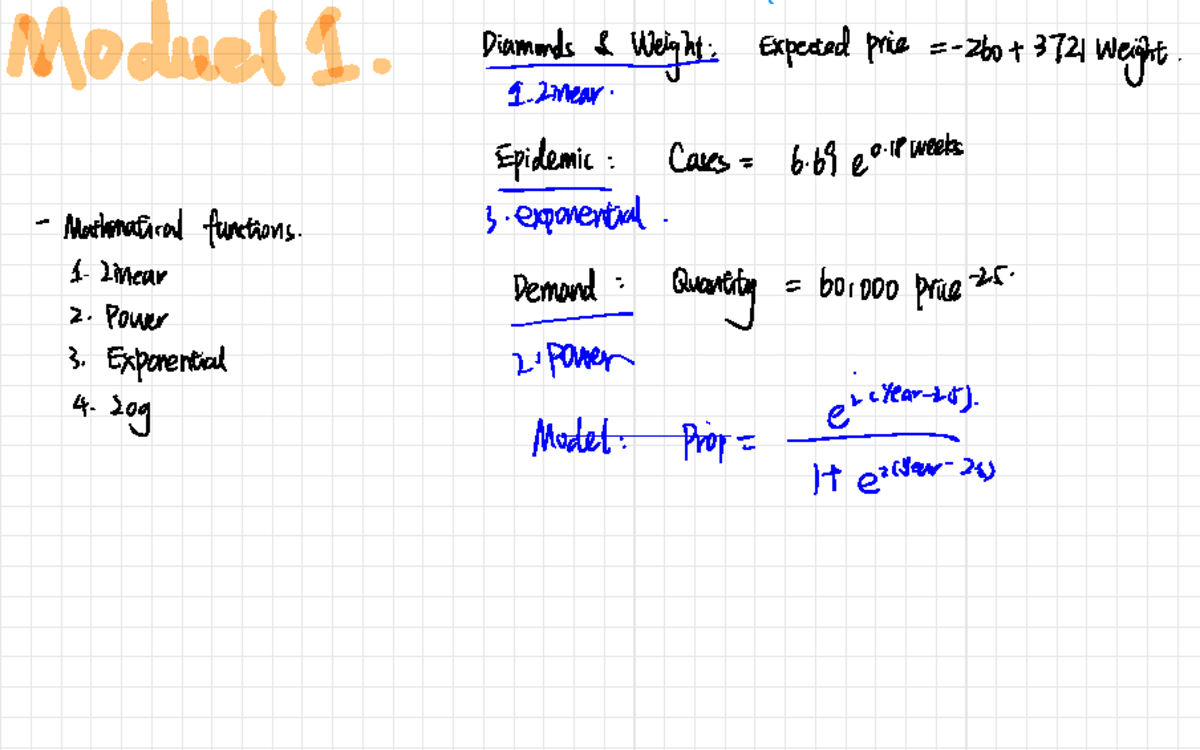 Moduel 1.
- Mathematical functions.
1. Linear
2. Power
3. Exponential
4. Log
Diamonds & Weight: Expected price = -260 + 3721 Weight.
1. Linear.
Epidemic: Cases = 6.69 e^0.18 weeks
3. exponential.
Demand: Quantity = 60,000 price^-2.5.
2. Power
Model: Prop = e^2(Year-2.5).
1+ e^2(Year-2.5)